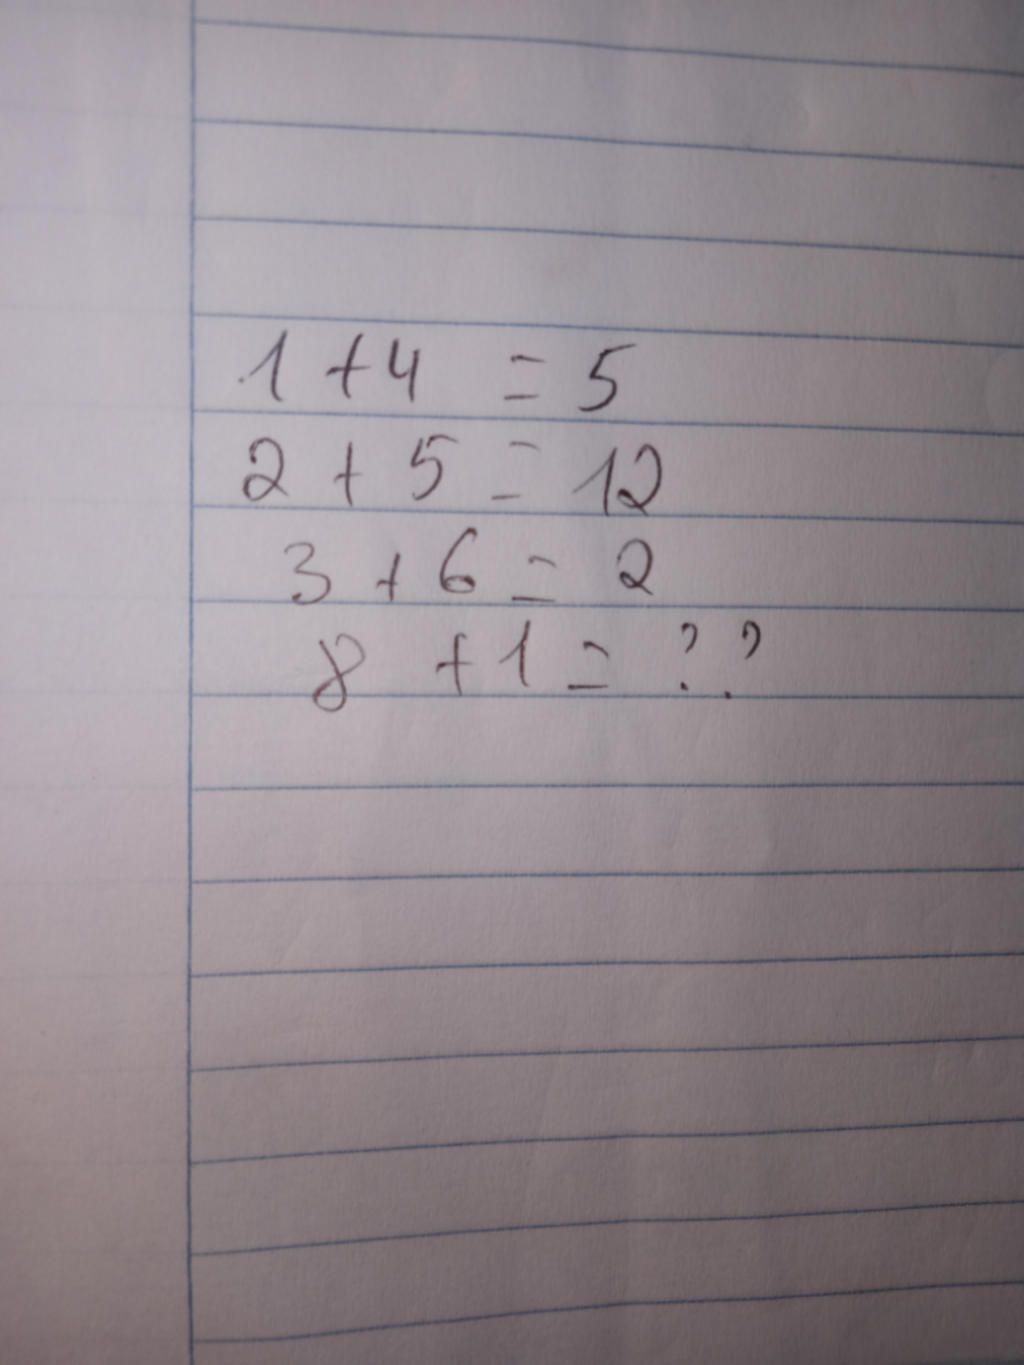 1 + 4 = 5
2 + 5 = 12
3 + 6 = 2
8 + 1 = ??